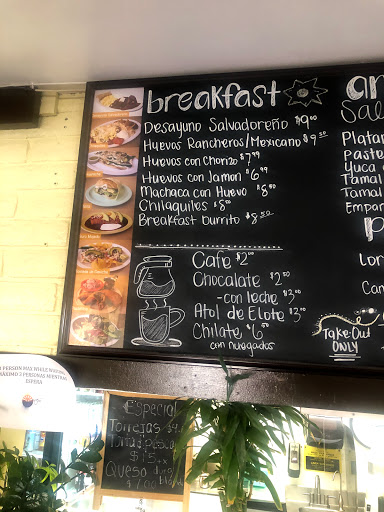 breakfast
Desayuno Salvadoreño $9.00
Huevos Rancheros/Mexicano $9.50
Huevos con Chorizo $7.99
Huevos con Jamon $6.99
Machaca con Huevo $8.50
Chilaquiles $8.00
Breakfast burrito $8.50
Cafe $2.00
Chocalate $2.50
-con leche $3.00
Atol de Elote $3.00
Chilate $6.50
con nuegados
Platan
Paste
Yuca
Tamal
Tamal
Empan
Lor
Take-Out
ONLY
PERSON MAX WHILE WAITING
MÁXIMO 3 PERSONAS MIENTRAS
ESPERA
Especial
Torrejas
$15
Queso